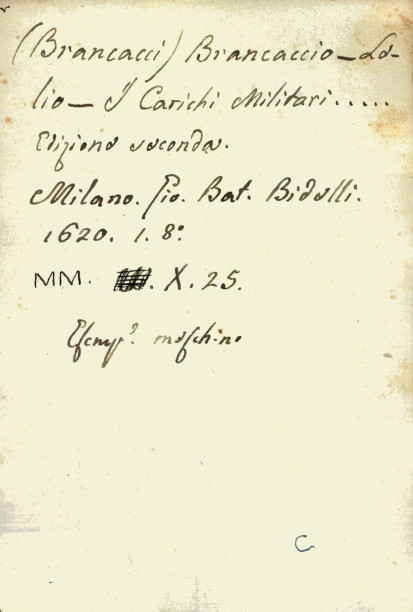 (Brancacci) Brancaccio — Le-
lio — I Carichi Militari.....
Edizione seconda.
Milano. Gio. Bat. Bidelli.
1620. 1. 8°.
MM. X. 25.
Esemp.e meschino
C